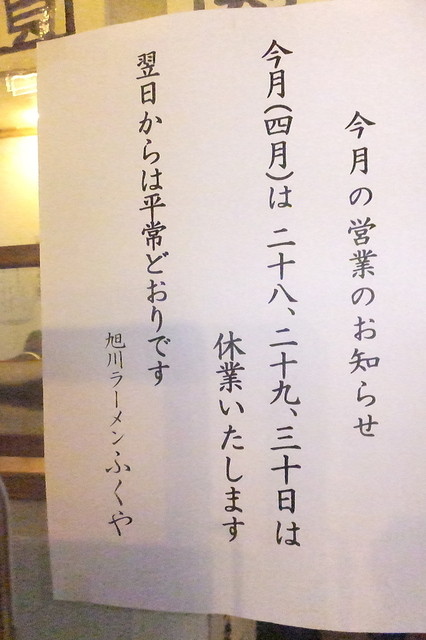 今月の営業のお知らせ
今月(四月)は 二十八、二十九、三十日は
休業いたします
翌日からは平常どおりです
旭川ラーメンふくや